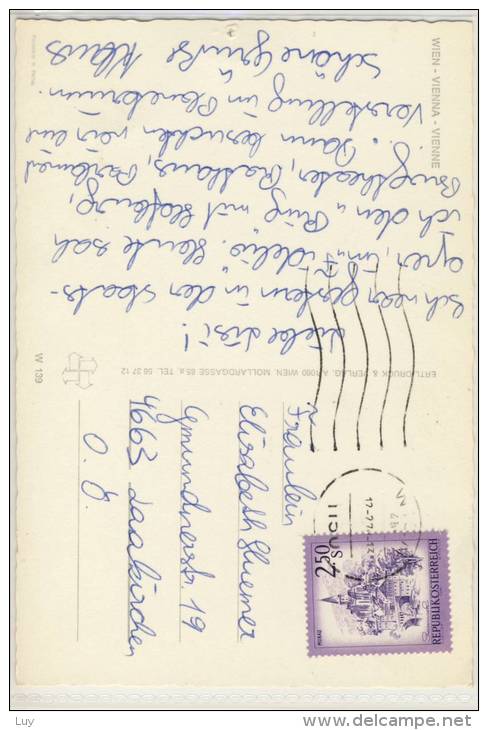 WIEN - VIENNA - VIENNE
Liebe Lisi!
Ich war gestern in der Staats-
oper, in „Fidelio". Heute sah
ich den „Ring mit Hofburg,
Burgtheater, Rathaus, Parlament
Dann besuchten wir eine
Vorstellung im Planetarium.
Schöne Grüße Klaus
ERTL-DRUCK & VERLAG, A-1060 WIEN, MOLLARDGASSE 85a, TEL. 56 37 12
W 139
Fräulein
Elisabeth
Gmundnerstr. 19
4663 Laakirchen
O. Ö.
2.50
S
MURAU
REPUBLIK ÖSTERREICH
Luy
www.delcampe.net